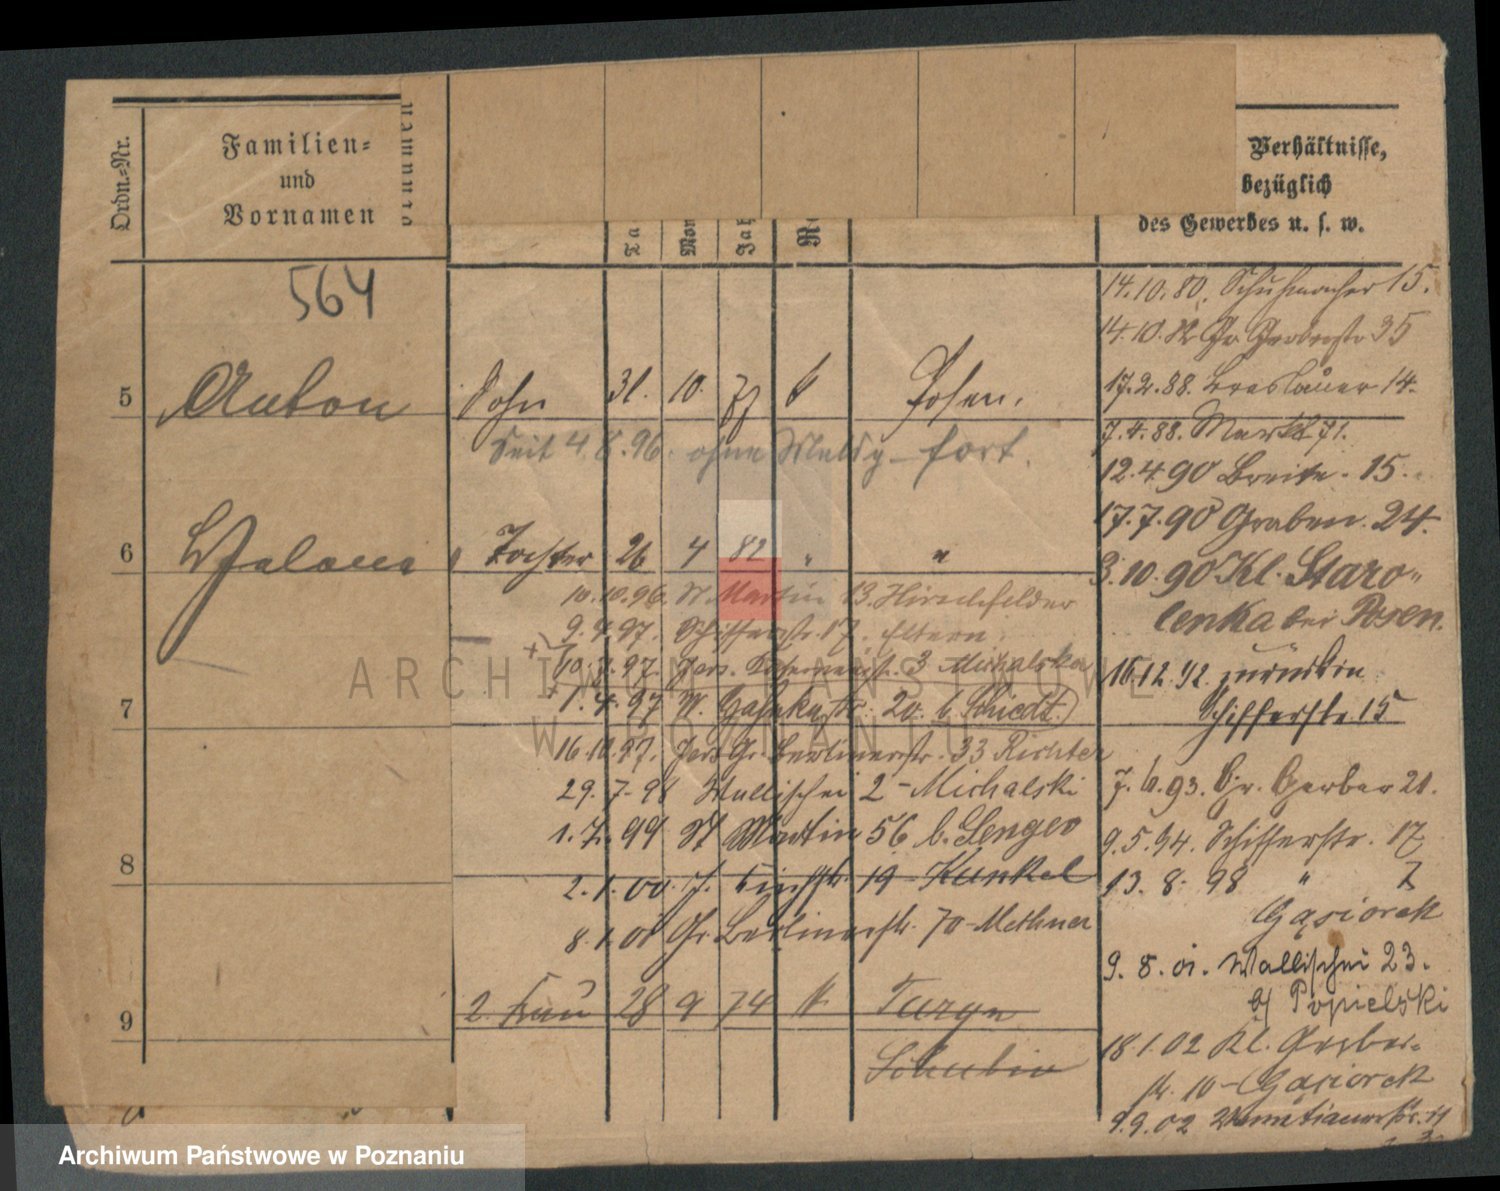 Ordn.-Nr.
Familien-
und
Vornamen
Verhältnisse,
bezüglich
des Gewerbes u. s. w.
564
14.10.80. Schuhmacher 15.
14.10.82 Gr. Gerberstr 35
5 Anton Sohn 31. 10. 77 k Posen.
17.2.88. Breslauer 14.
7.4.88. Markt 71.
Seit 4.8.96. ohne Meldg fort.
12.4.90 Breite. 15.
17.7.90 Graben. 24.
6 Helena Tochter 26 4 82 " "
3.10.90 Kl. Staro-
lenka bei Posen.
10.10.96. St. Martin 13. Hirschfelder
9.4.97. Schifferstr. 17. Eltern.
10.7.97. Jers. 3 Michalska
16.12.92. zurück in
Schifferstr. 15
7
1.4.97 W. 20. b. Schiedt.
16.10.97. Jers. Gr. Berlinerstr. 33 Richter
29.7.98 Wallischei 2 - Michalski
7.6.93. Gr. Gerber 21.
1.7.99 St Martin 56 b. Senger
9.5.94. Schifferstr. 17
8
2.1.00. J. 19 - Kunkel
13. 8. 98 " 7
Gasiorek
8.1.01 Gr. Berlinerstr. 70 - Methner
9. 8. 01. Wallischei 23.
b/ Popielski
9 2. Frau 28 9 74 k
Schubin
18.1.02 Kl. Gerber-
str. 10 - Gasiorek
9.9.02 Venetianerstr. 11
ARCHIWUM PAŃSTWOWE
W POZNANIU
Archiwum Państwowe w Poznaniu